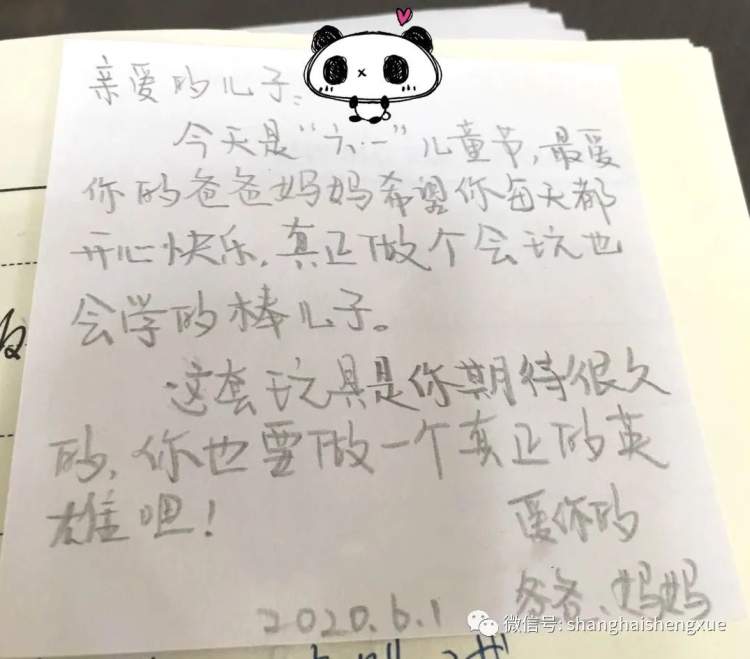 亲爱的儿子:
今天是“六一”儿童节,最爱
你的爸爸妈妈希望你每天都
开心快乐,真正做个会玩也
会学的棒儿子。
这套玩具是你期待很久
的,你也要做一个真正的英
雄吧!
爱你的
爸爸、妈妈
2020.6.1
微信号: shanghaishengxue